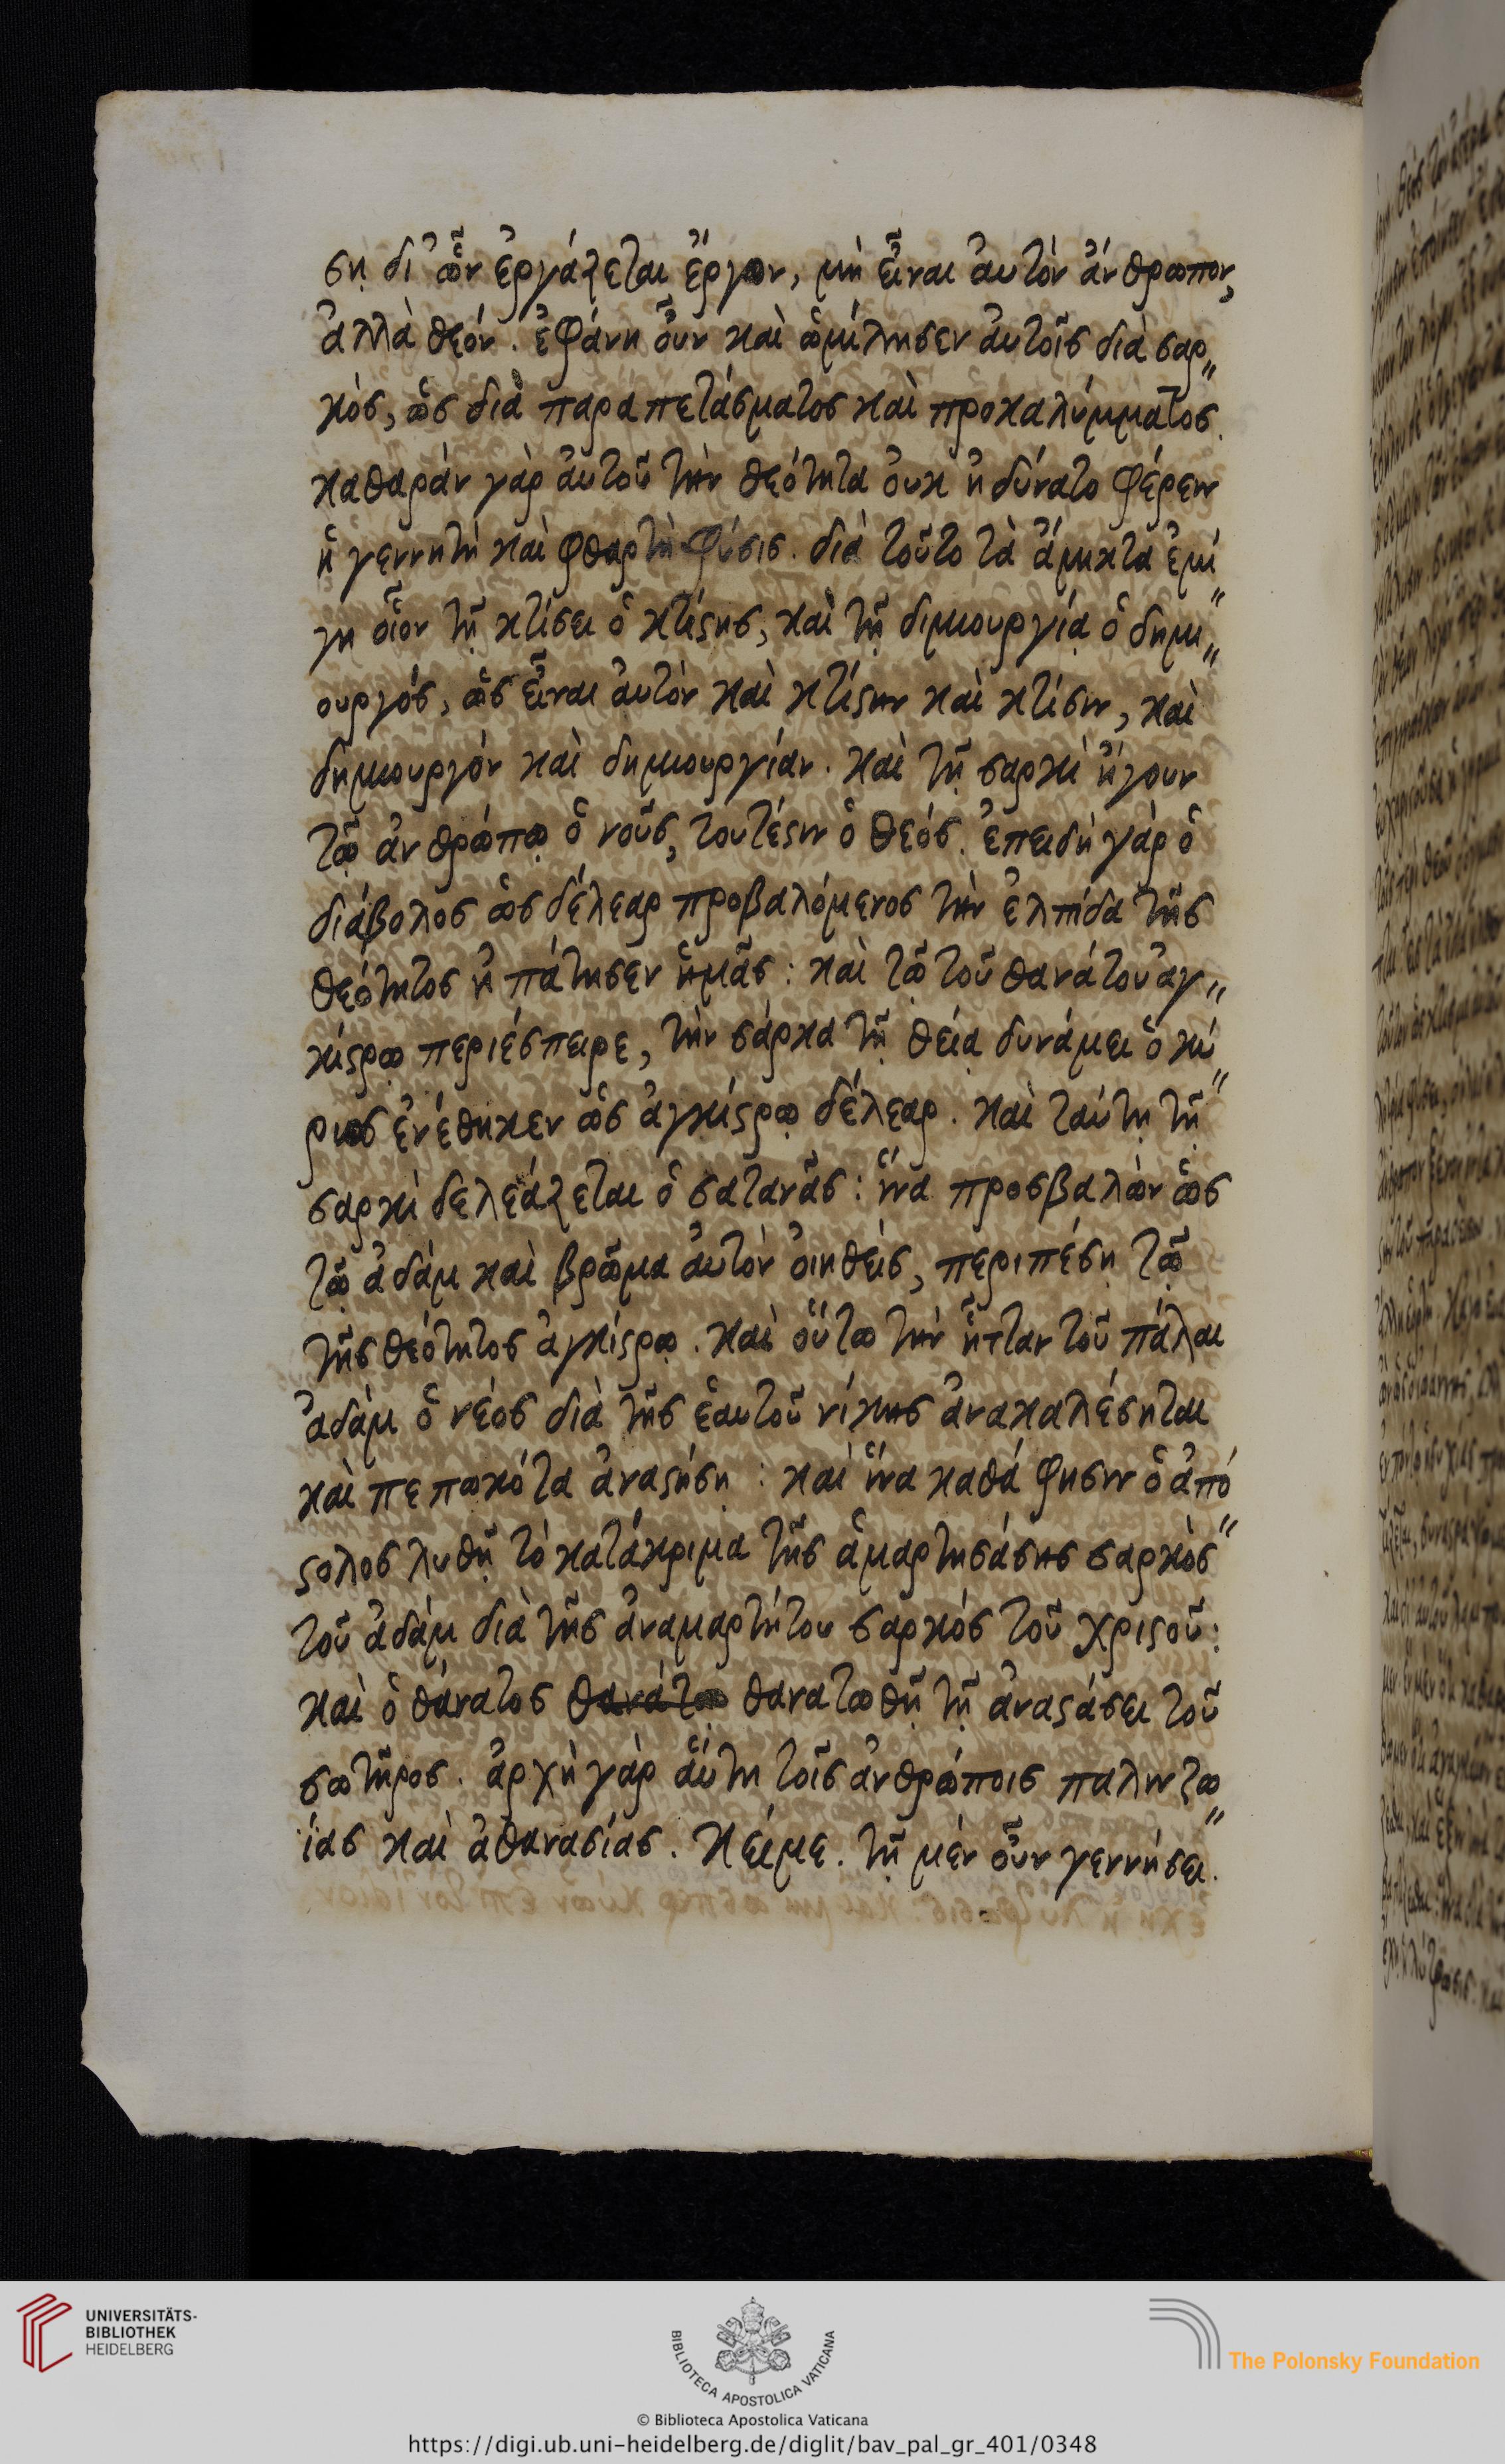 ση δι ὧν ἐργάζεται ἔργων, μὴ εἶναι ἀυτὸν ἄνθρωπον,
ἀλλὰ θεόν. ἐφάνη ὀῦν καὶ ὡμίλησεν ἀυτοῖς διὰ σαρ〃
κὸς, ὡς διὰ παραπετάσματος καὶ προκαλύμματος.
καθαρὰν γὰρ ἀυτοῦ τὴν θεότητα ὀυκ ἠδύνατο φέρειν
ἡ γεννητὴ καὶ φθαρτὴ φύσις. διὰ τοῦτο τὰ ἄμικτα ἐμί〃
γη οἷον τῇ κτίσει ὁ κτίστης, καὶ τῇ διμιουργίᾳ ὁ δημι〃
ουργός, ὡς εἶναι ἀυτὸν καὶ κτίστην καὶ κτίσιν, καὶ
δημιουργὸν καὶ δημιουργίαν. καὶ τῇ σαρκὶ ἤγουν
τῷ ἀνθρώπῳ ὁ νοῦς, τουτέστιν ὁ θεός. ἐπειδὴ γὰρ ὁ
διάβολος ὡς δέλεαρ προβαλόμενος τὴν ἐλπίδα τῆς
θεότητος ἠπάτησεν ἡμᾶς: καὶ τῷ τοῦ θανάτου ἀγ〃
κίστρῳ περιέσπειρε, τὴν σάρκα τῇ θείᾳ δυνάμει ὁ κύ〃
ριος ἐνέθηκεν ὡς ἀγκίστρῳ δέλεαρ. καὶ ταύτῃ τῇ
σαρκὶ δελεάζεται ὁ σατανᾶς: ἵνα προσβαλὼν ὡς
τῷ ἀδὰμ καὶ βρῶμα ἀυτὸν ὀιηθεὶς, περιπέσῃ τῷ
τῆς θεότητος ἀγκίστρῳ. καὶ οὕτω τὴν ἧτταν τοῦ πάλαι
ἀδὰμ ὁ νέος διὰ τῆς ἑαυτοῦ νίκης ἀνακαλέσηται
καὶ πεπωκότα ἀναστήσῃ: καὶ ἵνα καθά φησιν ὁ ἀπό〃
στολος λυθῇ τὸ κατάκριμα τῆς ἁμαρτησάσης σαρκὸς
τοῦ ἀδὰμ διὰ τῆς ἀναμαρτήτου σαρκός τοῦ χριστοῦ:
καὶ ὁ θάνατος θανάτω θανατωθῇ τῇ ἀναστάσει τοῦ
σωτῆρος. ἀρχὴ γὰρ ἅυτη τοῖς ἀνθρώποις παλιντω〃
ίας καὶ ἀθανασίας. κείμε. τῇ μὲν ὀῦν γεννήσει.
UNIVERSITÄTS-
BIBLIOTHEK
HEIDELBERG
BIBLIOTECA APOSTOLICA VATICANA
The Polonsky Foundation
© Biblioteca Apostolica Vaticana
https://digi.ub.uni-heidelberg.de/diglit/bav_pal_gr_401/0348